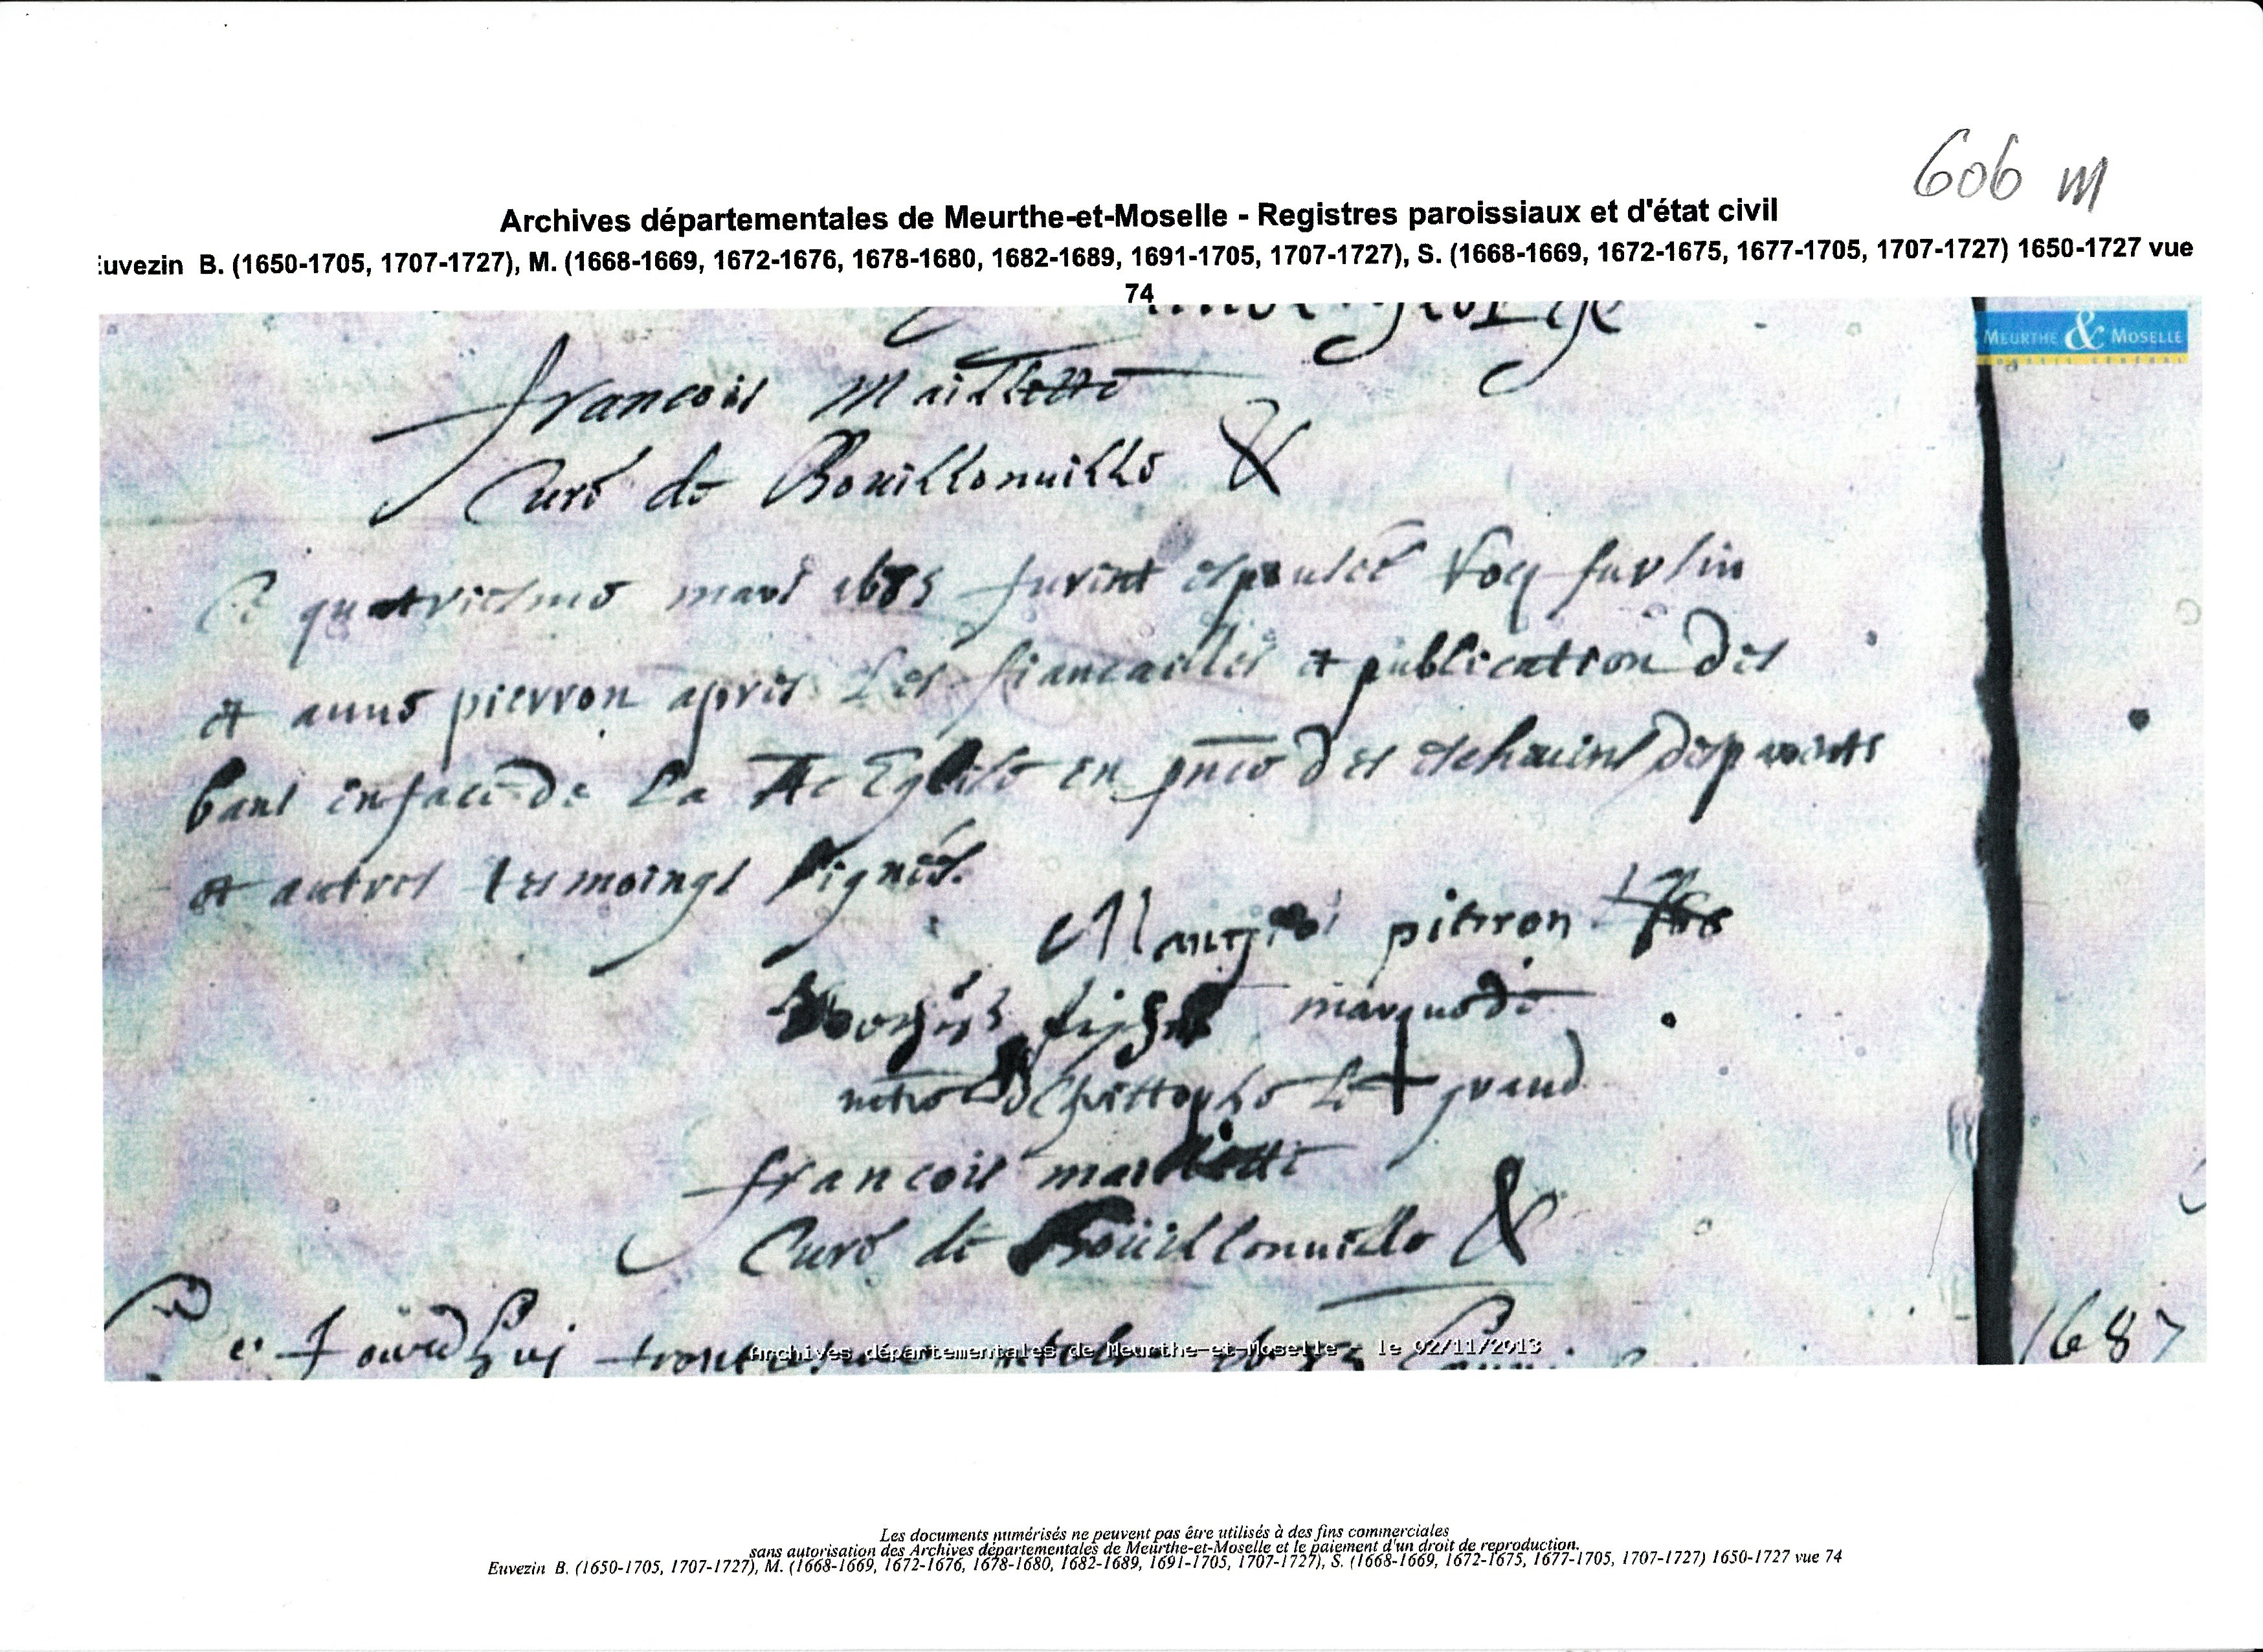 606 m
Archives départementales de Meurthe-et-Moselle - Registres paroissiaux et d'état civil
uvezin B. (1650-1705, 1707-1727), M. (1668-1669, 1672-1676, 1678-1680, 1682-1689, 1691-1705, 1707-1727), S. (1668-1669, 1672-1675, 1677-1705, 1707-1727) 1650-1727 vue
74
MEURTHE & MOSELLE
francois Maillette
Curé de Bouillonuille
Ce quatriesme mars 1685 furent espousés
et anne pierron apres les fiancailles et publication des
bans en face de la Ste Eglise en pnce des eschevins des parents
et autres tesmoings signés.
pierron
marque de
Christophe le + grand
francois maillette
Curé de Bouillonuille
Ce Jourdhuy
1687
Archives départementales de Meurthe-et-Moselle - le 02/11/2013
Les documents numérisés ne peuvent pas être utilisés à des fins commerciales
sans autorisation des Archives départementales de Meurthe-et-Moselle et le paiement d'un droit de reproduction.
Euvezin B. (1650-1705, 1707-1727), M. (1668-1669, 1672-1676, 1678-1680, 1682-1689, 1691-1705, 1707-1727), S. (1668-1669, 1672-1675, 1677-1705, 1707-1727) 1650-1727 vue 74